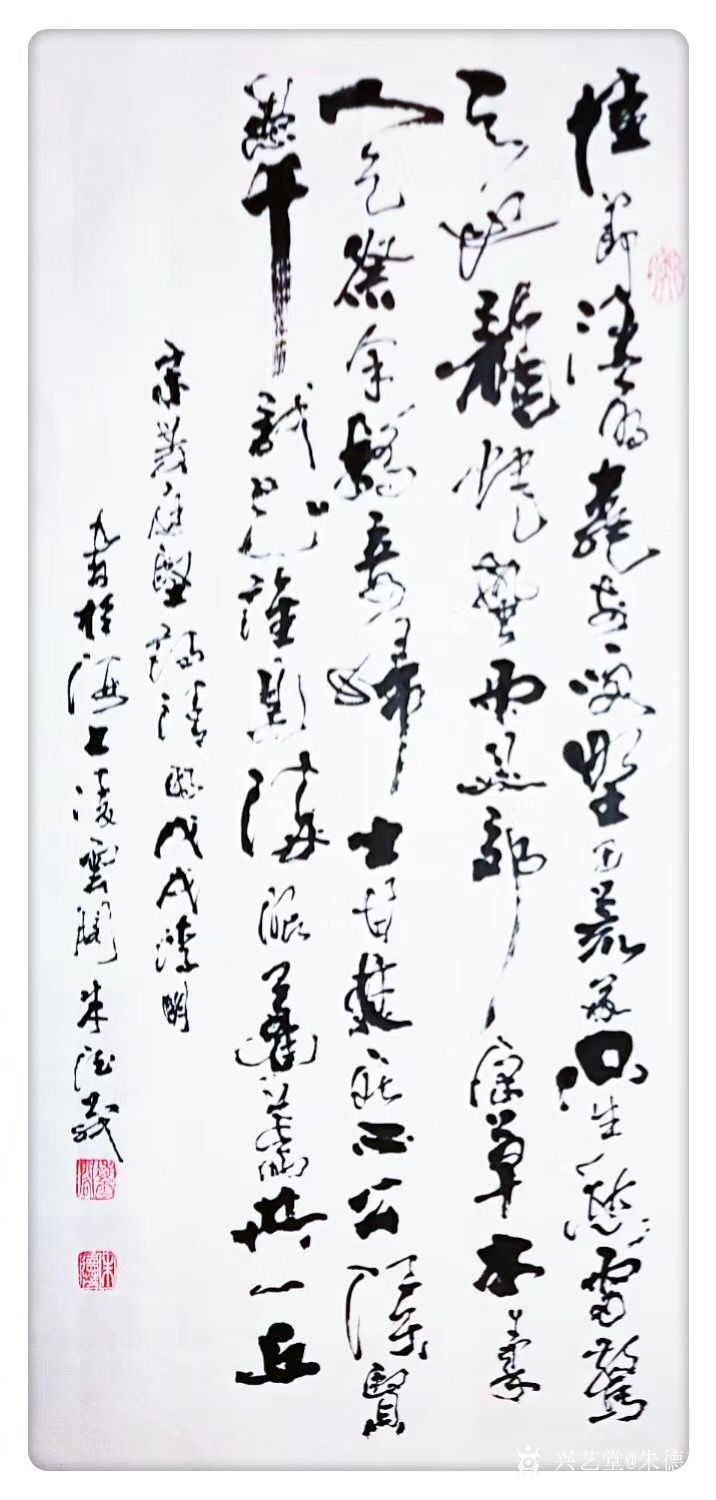 佳節清明桃李笑野田荒冢只生愁雷驚
天地龍蛇蟄雨足郊原草木柔
人乞祭余驕妾婦士甘焚死不公侯賢
愚千載知誰是滿眼蓬蒿共一丘
宋黄庭堅詩清明戊戌清明
於海上凌雲閣朱德義
兴艺堂@朱德